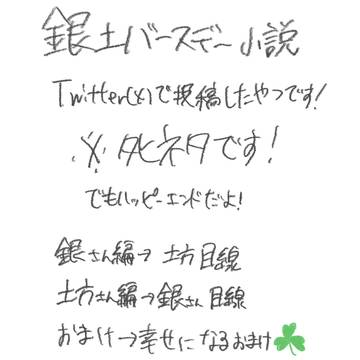 銀土バースデー小説
Twitter(X)で投稿したやつです!
※死ネタです!
でもハッピーエンドだよ!
銀さん編→土方目線
土方さん編→銀さん目線
おまけ→幸せになるおまけ